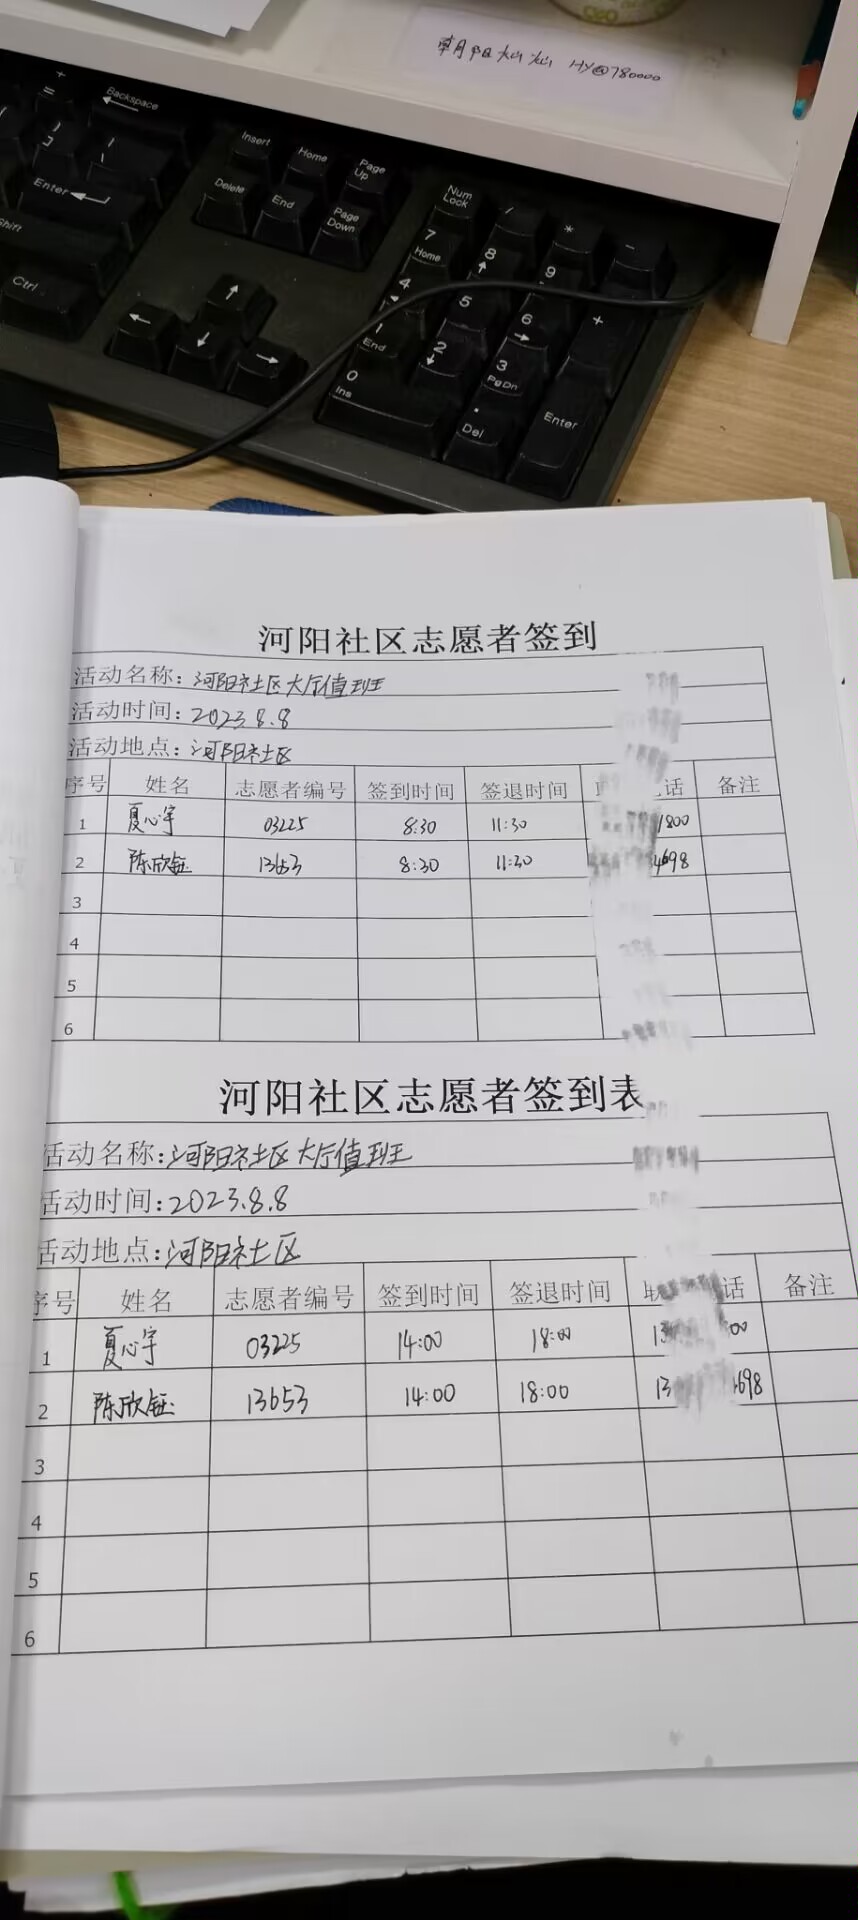 HY@780000
+
=
Backspace
Enter
Shift
Ctrl
Insert
Home
Page Up
Delete
End
Page Down
Num Lock
/
*
-
7 Home
8
9
4
5
6
+
1 End
2
3 PgDn
0 Ins
. Del
Enter
河阳社区志愿者签到
活动名称：河阳社区大厅值班
活动时间：2023.8.8
活动地点：河阳社区
序号 姓名 志愿者编号 签到时间 签退时间 话 备注
1 夏心宇 03225 8:30 11:30 1800
2 陈欣钰 13653 8:30 11:30 4698
3
4
5
6
河阳社区志愿者签到表
活动名称：河阳社区大厅值班
活动时间：2023.8.8
活动地点：河阳社区
序号 姓名 志愿者编号 签到时间 签退时间 联 话 备注
1 夏心宇 03225 14:00 18:00 13 00
2 陈欣钰 13653 14:00 18:00 13 698
3
4
5
6